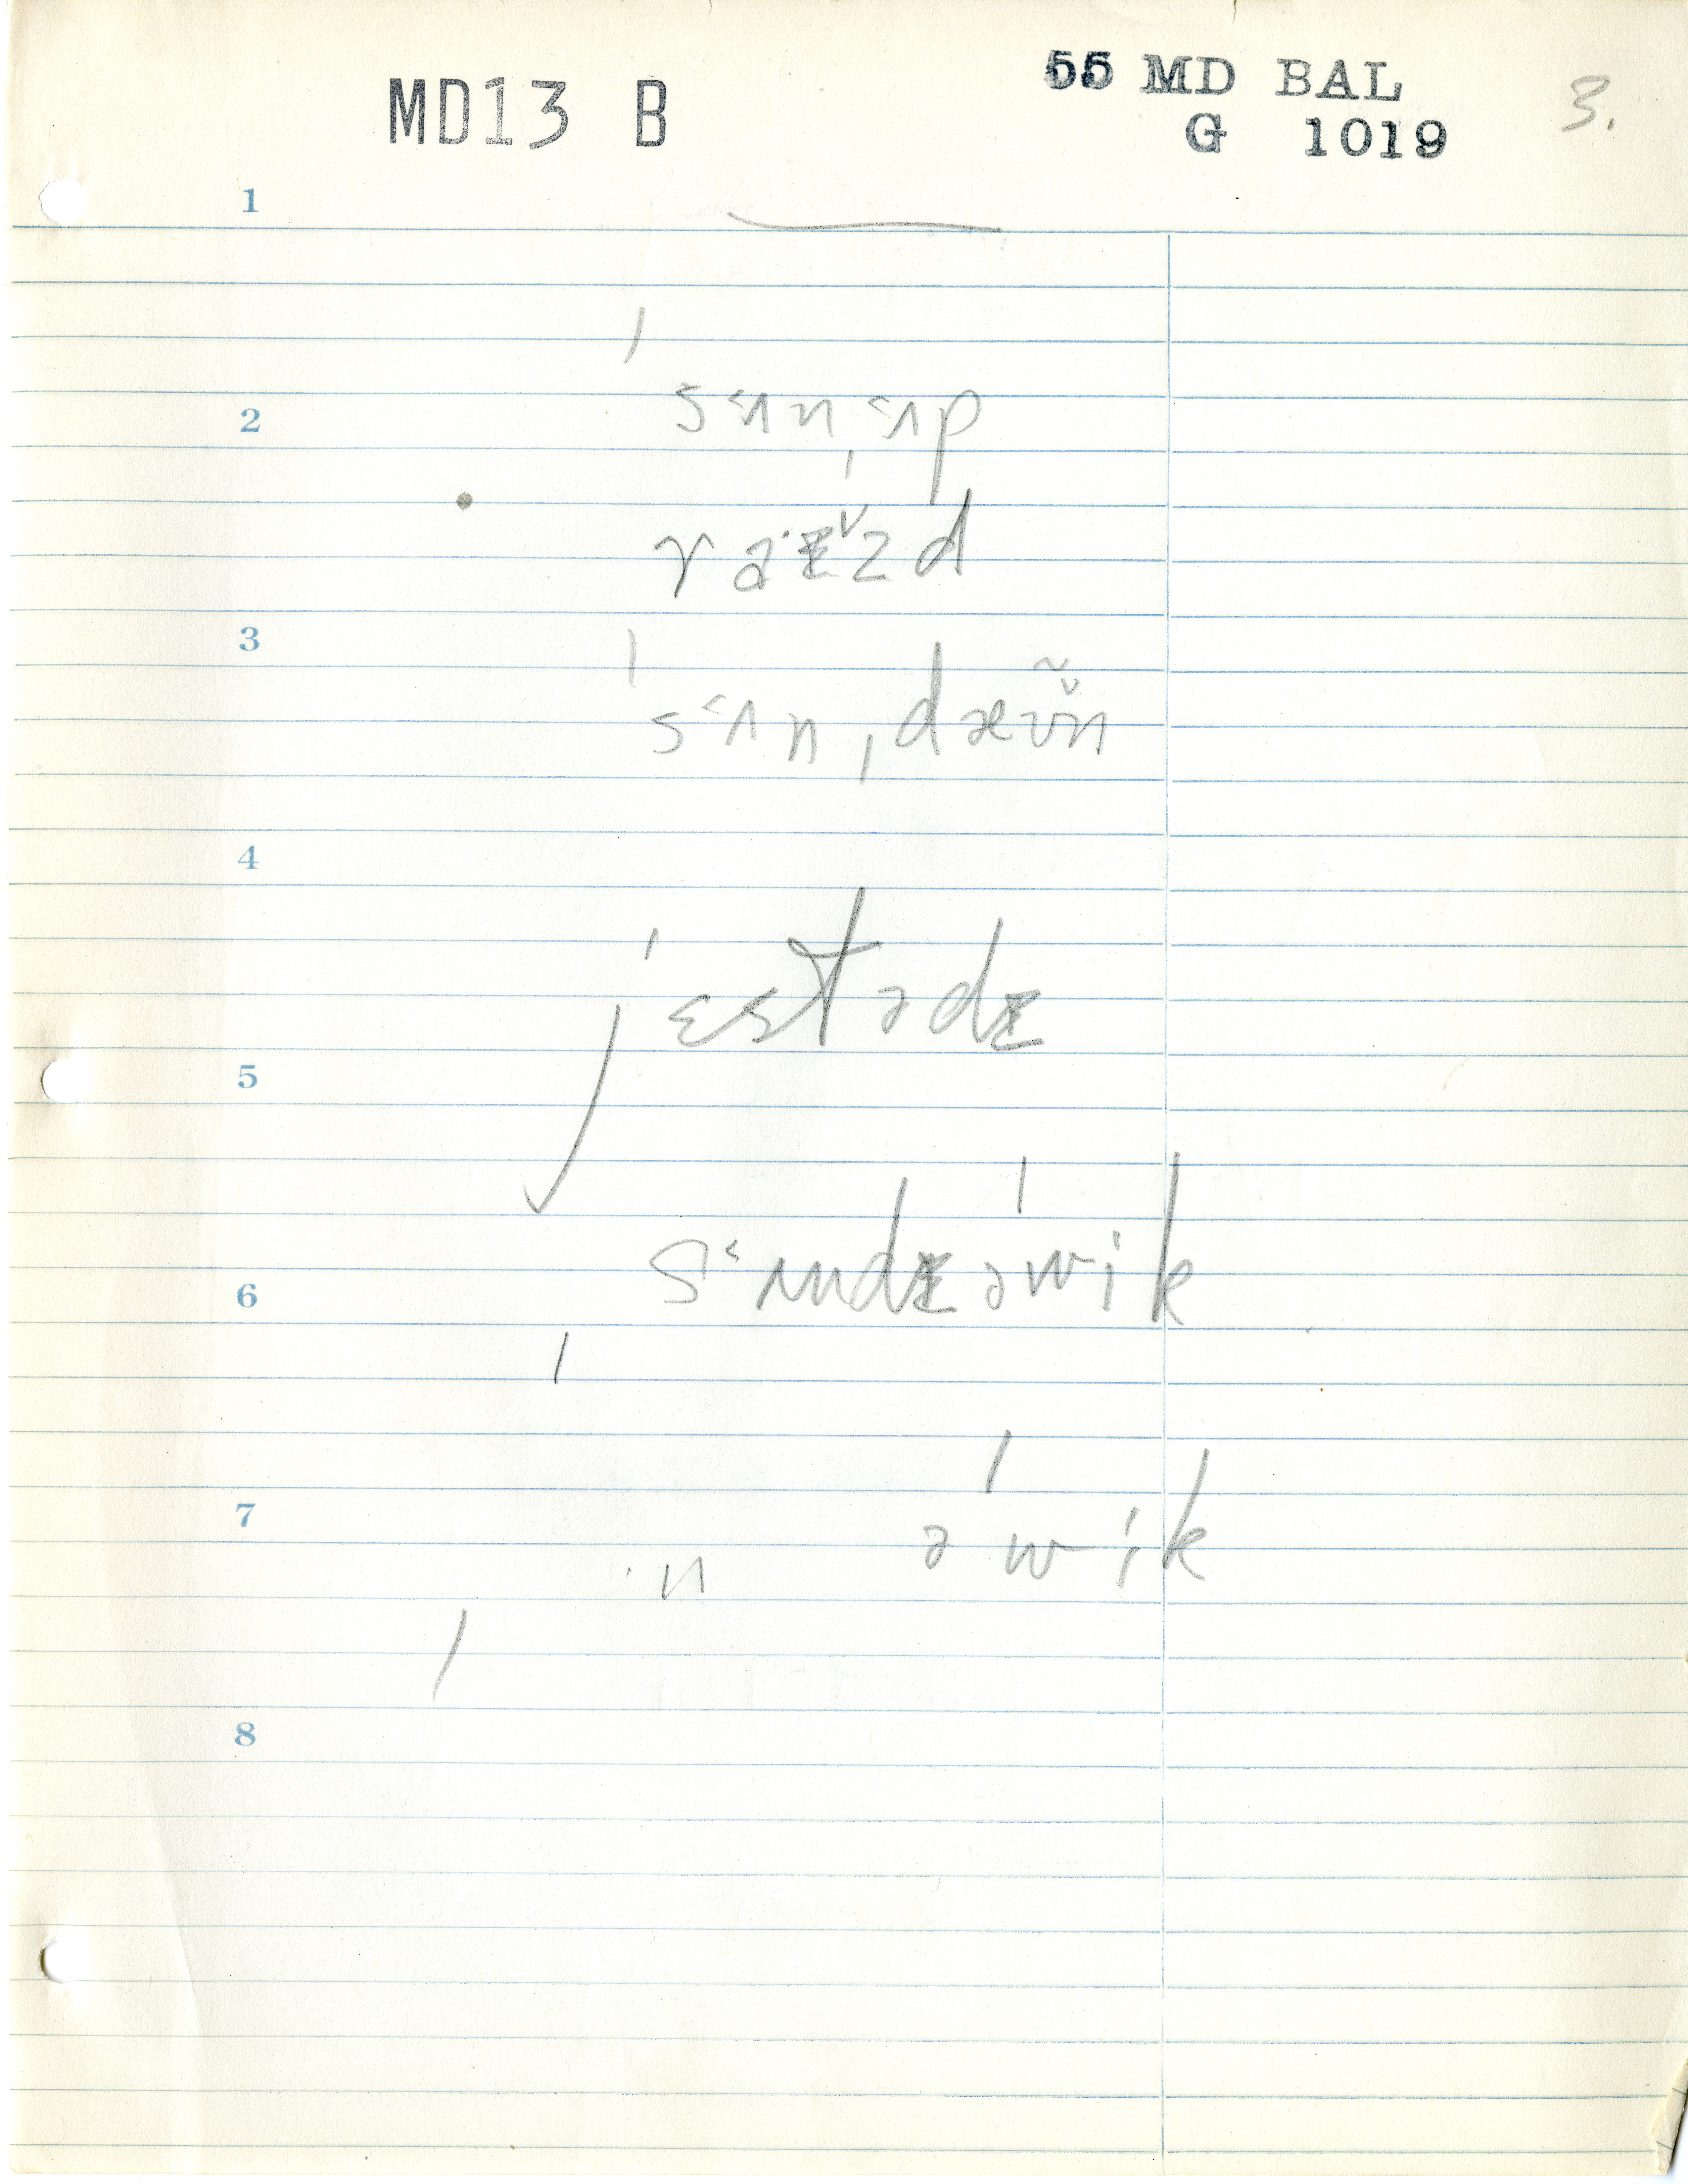 MD13 B
55 MD BAL
G 1019
3.
1
ˈs˂ʌnˌ˂ʌp
2
ˈraˑᵻzd
3
ˈs˂ʌnˌdæʊ̃̆n
4
ˈjɛstədᵻ
5
s˂ʌndᵻ əˈwik
6
əˈwik
7
n
8